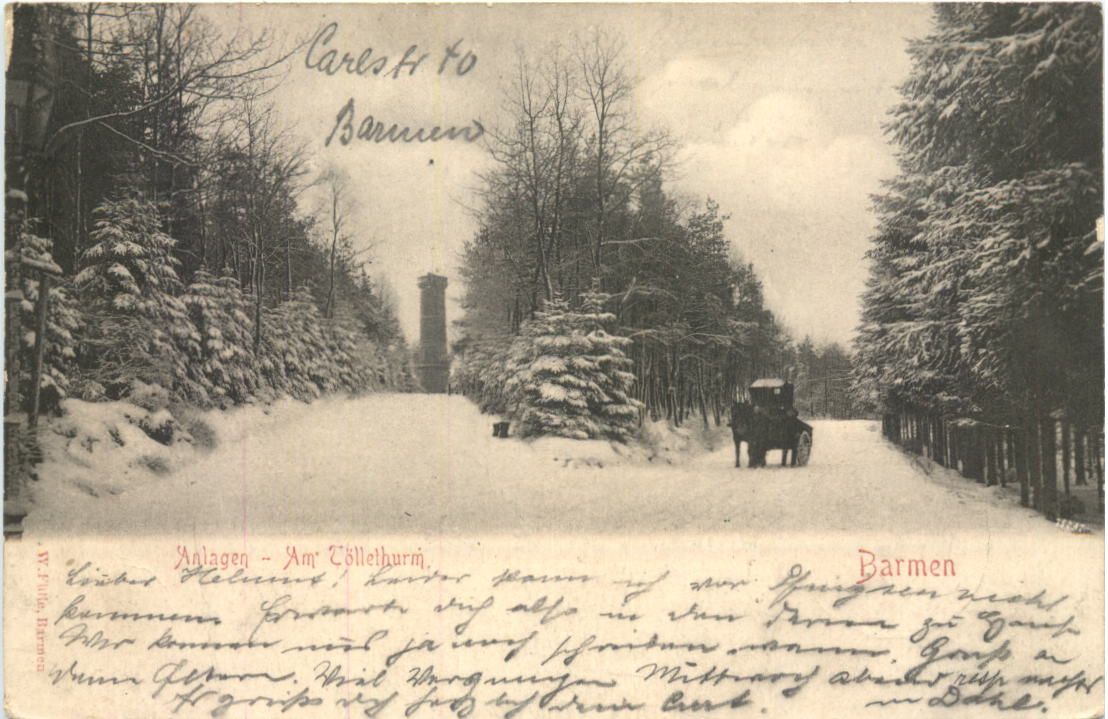 Carlstr 40
Barmen
Anlagen - Am Töllethurm.
Barmen
W. Fülle, Barmen
Lieber Helmut! Leider kann ich vor Pfingsten nicht
kommen. Erwarte dich also in den Ferien zu Hause
Wir können uns ja noch schreiben wann. Gruß an
deine Eltern. Viel Vergnügen Mittwoch abend resp nachher
Es grüßt dich herzlich dein Curt. in Dahl.